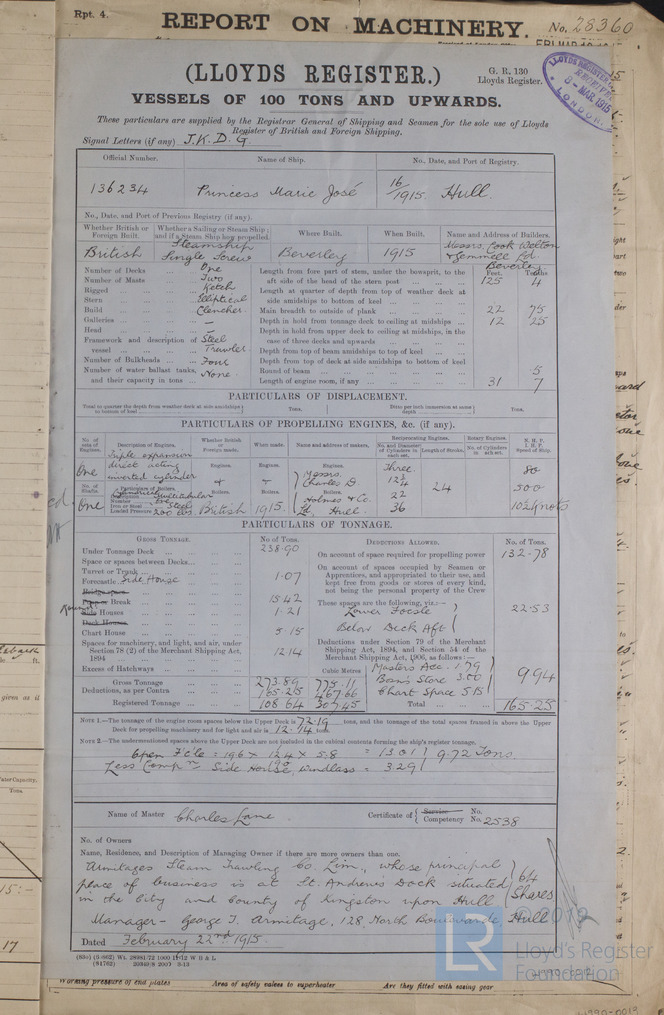 Rpt. 4.
REPORT ON MACHINERY.
No. 28360
(LLOYDS REGISTER.)
G. R. 130
Lloyds Register.
LLOYDS REGISTER
RECEIVED
8-MAR.1915
LONDON
VESSELS OF 100 TONS AND UPWARDS.
These particulars are supplied by the Registrar General of Shipping and Seamen for the sole use of Lloyds
Register of British and Foreign Shipping.
Signal Letters (if any) J.K.D.G.
Official Number. Name of Ship. No., Date, and Port of Registry.
136234 Princess Marie José 16/1915 Hull.
No., Date, and Port of Previous Registry (if any).
Whether British or Foreign Built. Whether a Sailing or Steam Ship; and if a Steam Ship how propelled. Where Built. When Built. Name and Address of Builders.
British Steamship Single Screw Beverley 1915 Messrs. Cook Welton & Gemmell Ld. Beverley
Feet. Tenths
Number of Decks One
Number of Masts Two
Rigged Ketch
Stern Elliptical
Build Clencher.
Galleries —
Head —
Framework and description of vessel Steel Trawler
Number of Bulkheads Four
Number of water ballast tanks, and their capacity in tons None
Length from fore part of stem, under the bowsprit, to the aft side of the head of the stern post 125 4
Length at quarter of depth from top of weather deck at side amidships to bottom of keel
Main breadth to outside of plank 22 75
Depth in hold from tonnage deck to ceiling at midships 12 25
Depth in hold from upper deck to ceiling at midships, in the case of three decks and upwards
Depth from top of beam amidships to top of keel
Depth from top of deck at side amidships to bottom of keel
Round of beam 5
Length of engine room, if any 31 7
PARTICULARS OF DISPLACEMENT.
Total to quarter the depth from weather deck at side amidships to bottom of keel Tons. Ditto per inch immersion at same depth Tons.
PARTICULARS OF PROPELLING ENGINES, &c. (if any).
No. of sets of Engines. Description of Engines. Whether British or Foreign made. When made. Name and address of makers. Reciprocating Engines. Rotary Engines. N. H. P. I. H. P. Speed of Ship.
No. and Diameter of Cylinders in each set. Length of Stroke. No. of Cylinders in each set.
One Triple expansion direct acting inverted cylinder
Engines. Engines. Engines.
Three.
12¾
22
36
24
80
500
10½ Knots
No. of Shafts. Particulars of Boilers.
One
Description Cylindrical Multitubular
Number One
Iron or Steel Steel
Loaded Pressure 200 lbs.
Boilers. Boilers. Boilers.
British 1915. Messrs. Charles D. Holmes & Co. Ld. Hull.
PARTICULARS OF TONNAGE.
GROSS TONNAGE. No. of Tons. DEDUCTIONS ALLOWED. No. of Tons.
Under Tonnage Deck 238.90
Space or spaces between Decks
Turret or Trunk
Forecastle Side House 1.07
Bridge space
Poop or Break 15.42
Side Houses 1.21
Deck Houses
Chart House 5.15
Spaces for machinery, and light, and air, under Section 78 (2) of the Merchant Shipping Act, 1894 12.14
Excess of Hatchways
Gross Tonnage 273.89 775.11
Deductions, as per Contra 165.25 467.66
Registered Tonnage 108.64 307.45
Cubic Metres
On account of space required for propelling power 132.78
On account of spaces occupied by Seamen or Apprentices, and appropriated to their use, and kept free from goods or stores of every kind, not being the personal property of the Crew
These spaces are the following, viz.:—
Lower Focsle
Below Deck Aft
22.53
Deductions under Section 79 of the Merchant Shipping Act, 1894, and Section 54 of the Merchant Shipping Act, 1906, as follows:—
Masters Acc. 1.79
Bosn's Store 3.00
Chart Space 5.15
9.94
Total 165.25
NOTE 1.—The tonnage of the engine room spaces below the Upper Deck is 72.19 tons, and the tonnage of the total spaces framed in above the Upper
Deck for propelling machinery and for light and air is 12.14 tons
NOTE 2.—The undermentioned spaces above the Upper Deck are not included in the cubical contents forming the ship's register tonnage.
Open F'cle = 19.6 × 12.4 × 5.8 = 13.01
Less Compn Side House, windlass = 3.29
9.72 Tons
Name of Master Charles Lane Certificate of Service Competency No. No. 2538
No. of Owners
Name, Residence, and Description of Managing Owner if there are more owners than one.
Armitages Steam Trawling Co. Lim., whose principal
place of business is at St. Andrews Dock situated
in the City and County of Kingston upon Hull
64 Shares
Manager - George T. Armitage, 128, North Boulevarde Hull
Dated February 22nd 1915.
©2019
LR
Lloyd's Register
Foundation
Working pressure of end plates Area of safety valves to superheater Are they fitted with easing gear